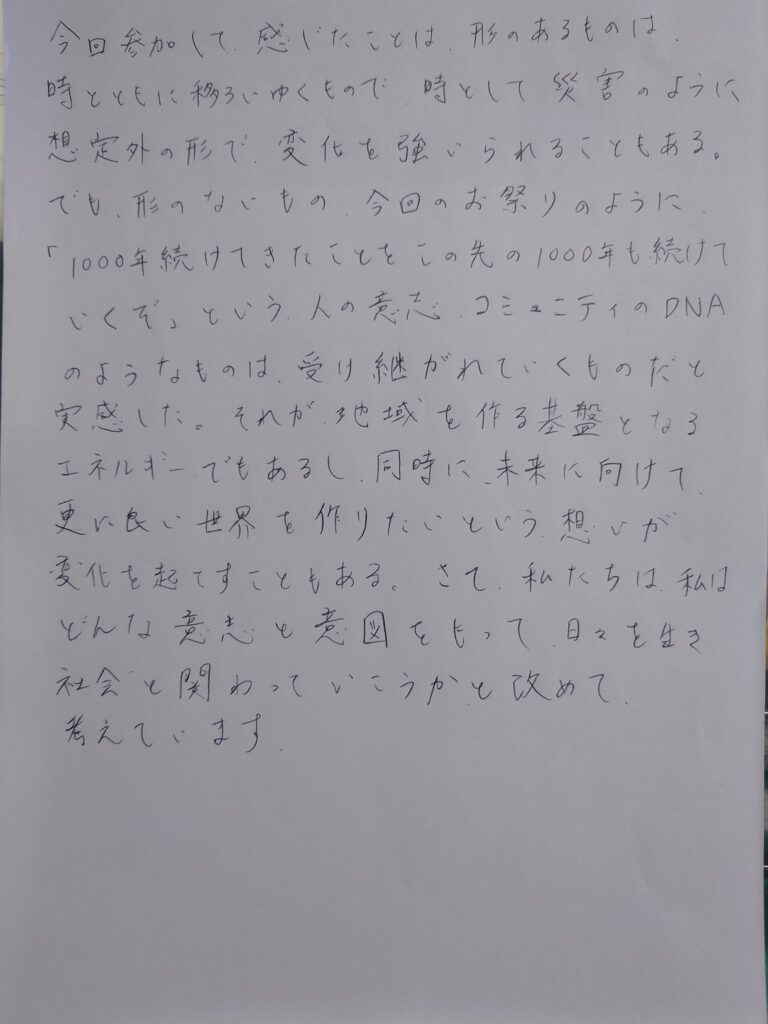 今回参加して、感じたことは、形のあるものは、
時とともに移ろいゆくもので、時として災害のように
想定外の形で、変化を強いられることもある。
でも、形のないもの、今回のお祭りのように、
「1000年続けてきたことをこの先の1000年も続けて
いくぞ」という、人の意志、コミュニティのDNA
のようなものは、受け継がれていくものだと
実感した。それが、地域を作る基盤となる
エネルギーでもあるし、同時に、未来に向けて、
更に良い世界を作りたいという、想いが、
変化を起こすこともある。さて、私たちは、私は
どんな意志と意図をもって、日々を生き、
社会と関わっていこうか、と改めて、
考えています。